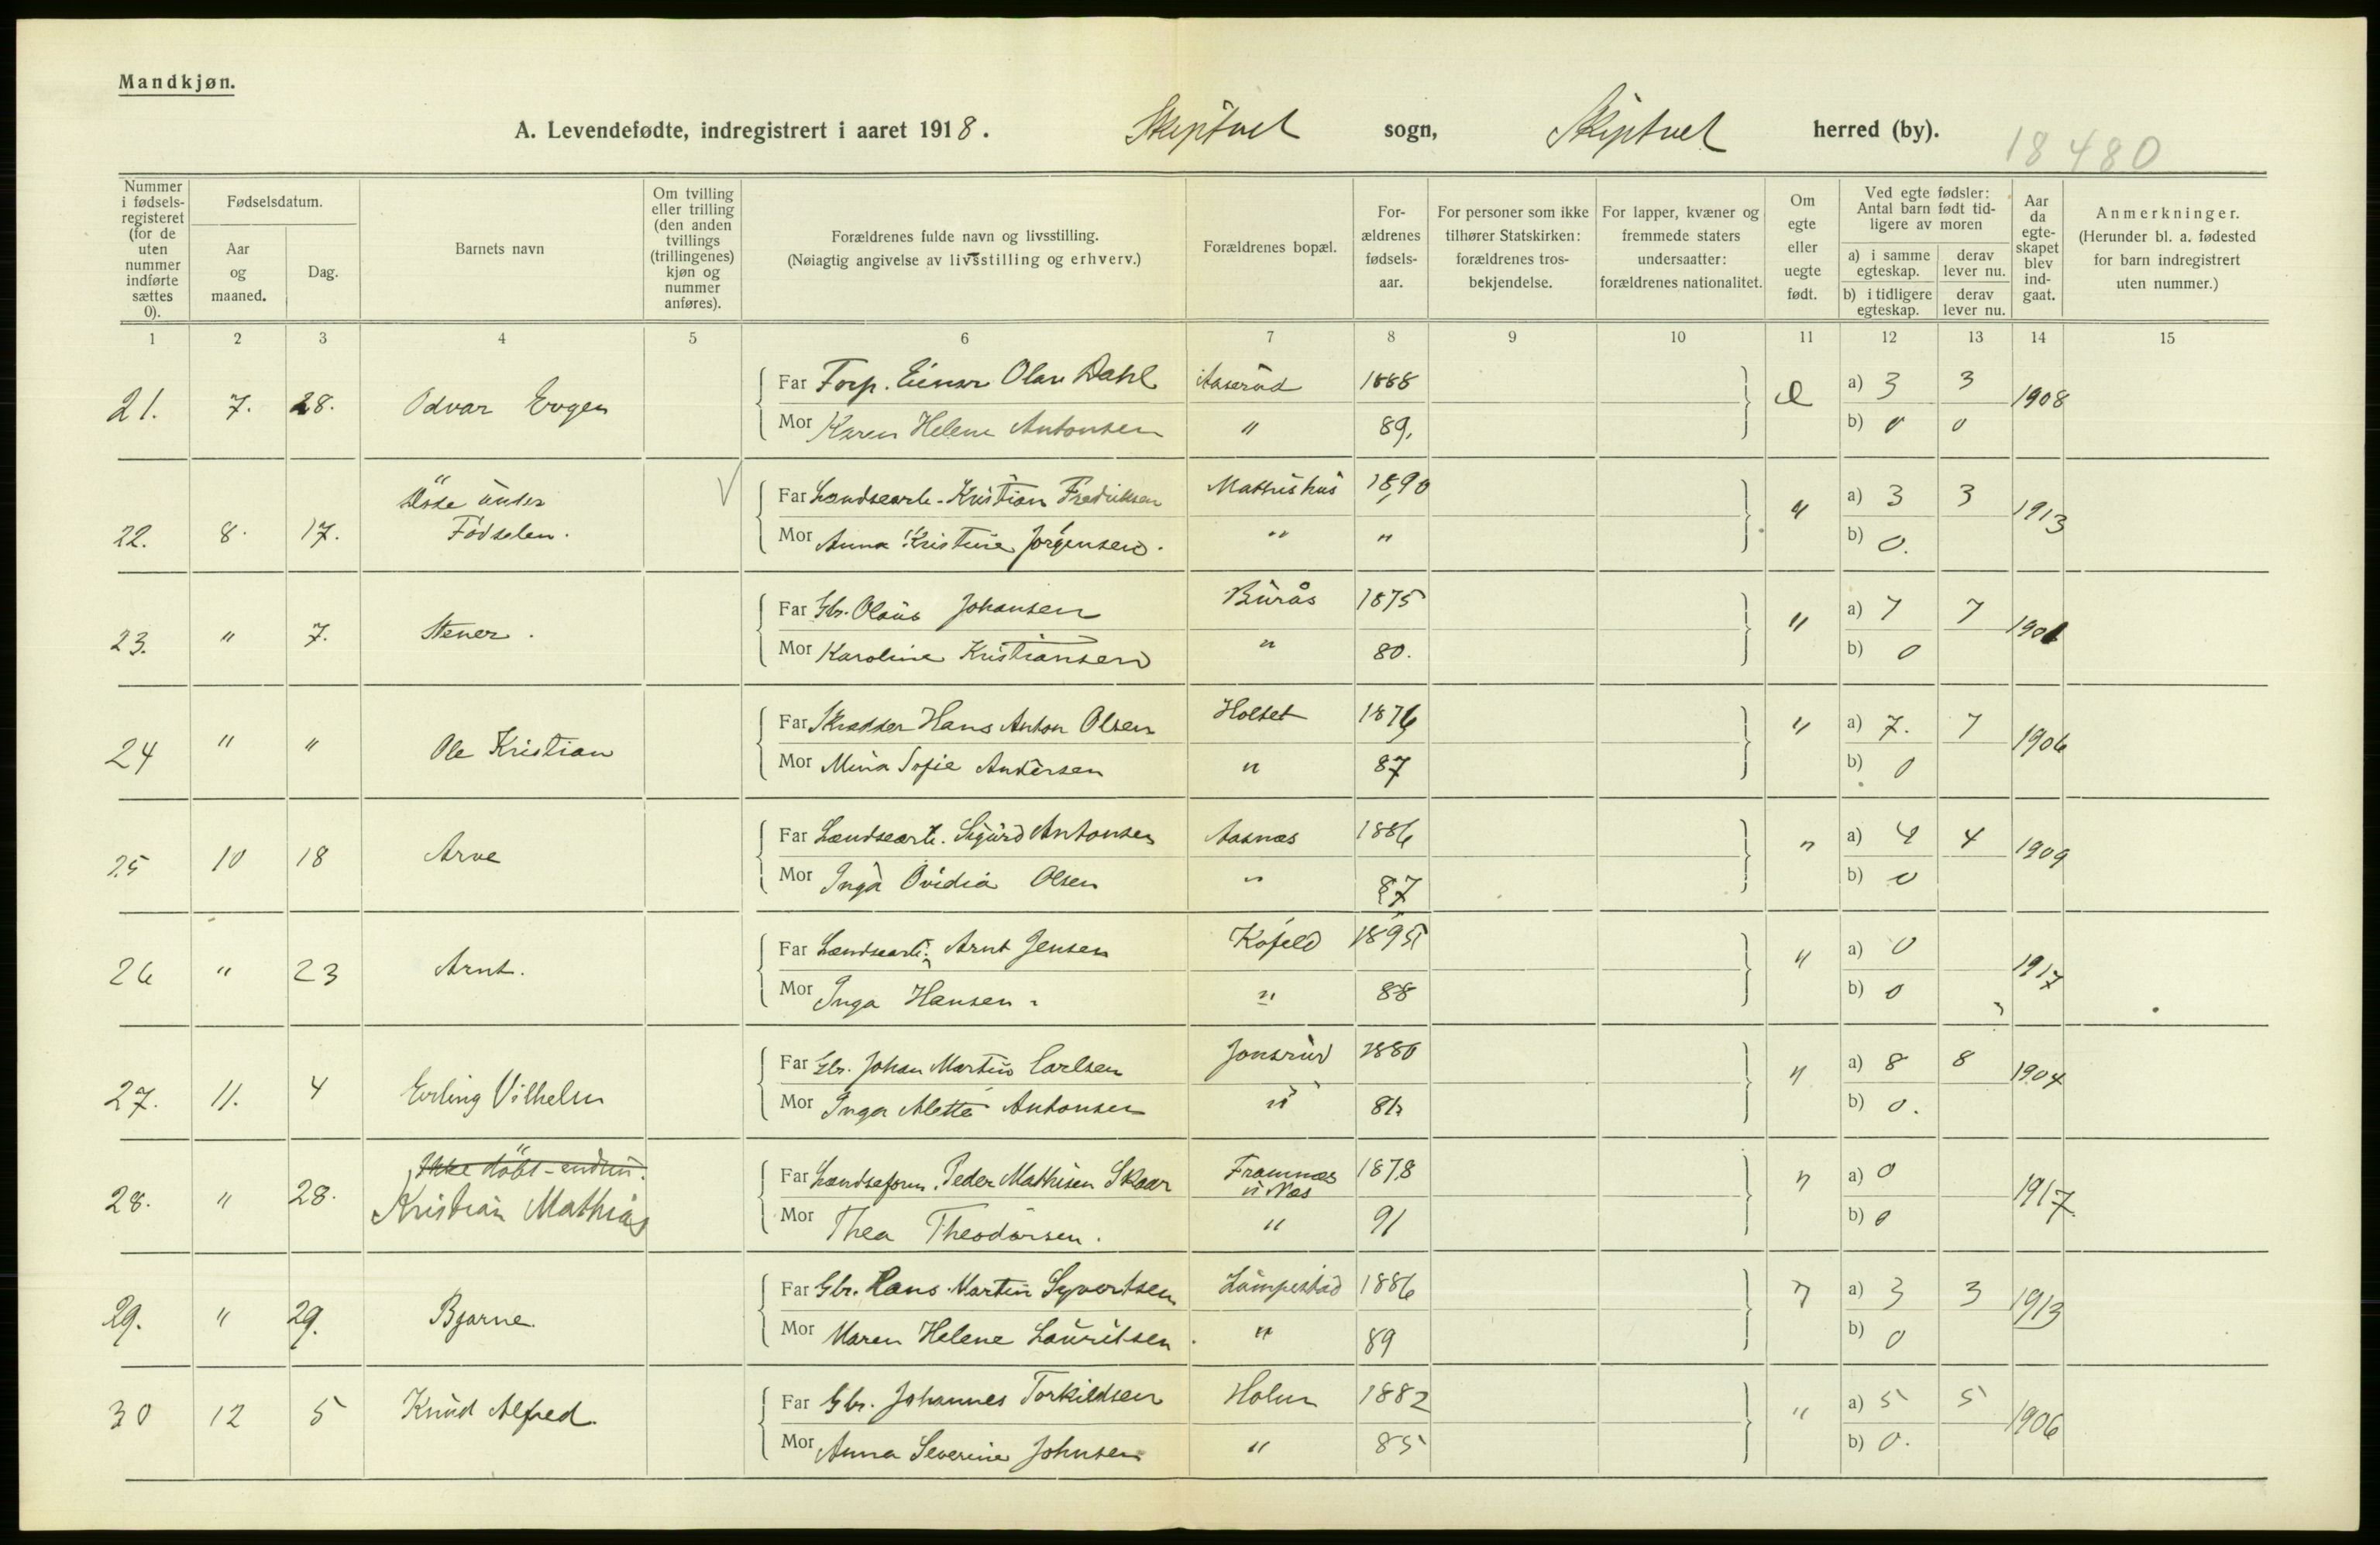 Mandkjøn.
A. Levendefødte, indregistrert i aaret 1918. Skiptvet sogn, Skiptvet herred (by).
18480
Nummer i fødsels-registeret (for de uten nummer indførte sættes 0).
Fødselsdatum.
Aar og maaned.
Dag.
Barnets navn
Om tvilling eller trilling (den anden tvillings (trillingenes) kjøn og nummer anføres).
Forældrenes fulde navn og livsstilling.
(Nøiagtig angivelse av livsstilling og erhverv.)
Forældrenes bopæl.
For-ældrenes fødsels-aar.
For personer som ikke tilhører Statskirken: forældrenes tros-bekjendelse.
For lapper, kvæner og fremmede staters undersaatter: forældrenes nationalitet.
Om egte eller uegte født.
Ved egte fødsler: Antal barn født tid-ligere av moren
a) i samme egteskap.
derav lever nu.
b) i tidligere egteskap.
derav lever nu.
Aar da egte-skapet blev ind-gaat.
Anmerkninger.
(Herunder bl. a. fødested for barn indregistrert uten nummer.)
1 2 3 4 5 6 7 8 9 10 11 12 13 14 15
21. 7. 28. Odvar Evgen
Far Forp. Einar Olav Dahl Aaserud 1888 e a) 3 3 1908
Mor Karen Helene Antonsen " 89. b) 0 0
22. 8. 17. Döde under Fødselen.
Far Landsearb. Kristian Fredriksen Mathishus 1890 " a) 3 3 1913
Mor Anna Kristine Jørgensen. " " b) 0.
23. " 7. Stener.
Far Gbr. Olaus Johansen Burås 1875 " a) 7 7
Mor Karoline Kristiansen " 80. b) 0
24 " " Ole Kristian
Far Skrædder Hans Anton Olsen Holtet 1876 " a) 7. 7 1906
Mor Mina Sofie Andersen " 87 b) 0
25 10 18 Arve
Far Landsearb. Sigurd Antonsen Aasnæs 1886 " a) 4 4 1909
Mor Inga Ovidia Olsen " 87 b) 0
26 " 23 Arnt.
Far Landsearb. Arnt Jensen Kofeld 1895 " a) 0 1917
Mor Inga Hansen " 88 b) 0
27. 11. 4 Erling Vilhelm
Far Gbr. Johan Martin Carlsen Jonsrud 1880 " a) 8 8 1904
Mor Inga Alette Antonsen " b) 0.
28. " 28. Ikke döbt - endnu.
Kristian Mathias
Far Peder Mathisen Skaar Framnæs u Næs 1878 " a) 0 1917
Mor Thea Theodorsen. " 91 b) 0
29. " 29. Bjarne.
Far Gbr. Hans Martin Syvertsen Lümpestad 1886 " a) 3 3 1913
Mor Maren Helene Lauritsen. " 89 b) 0
30 12 5 Knud Alfred.
Far Gbr. Johannes Torkildsen Holm 1882 " a) 5 5 1906
Mor Anna Severine Johnsen " 85 b) 0.